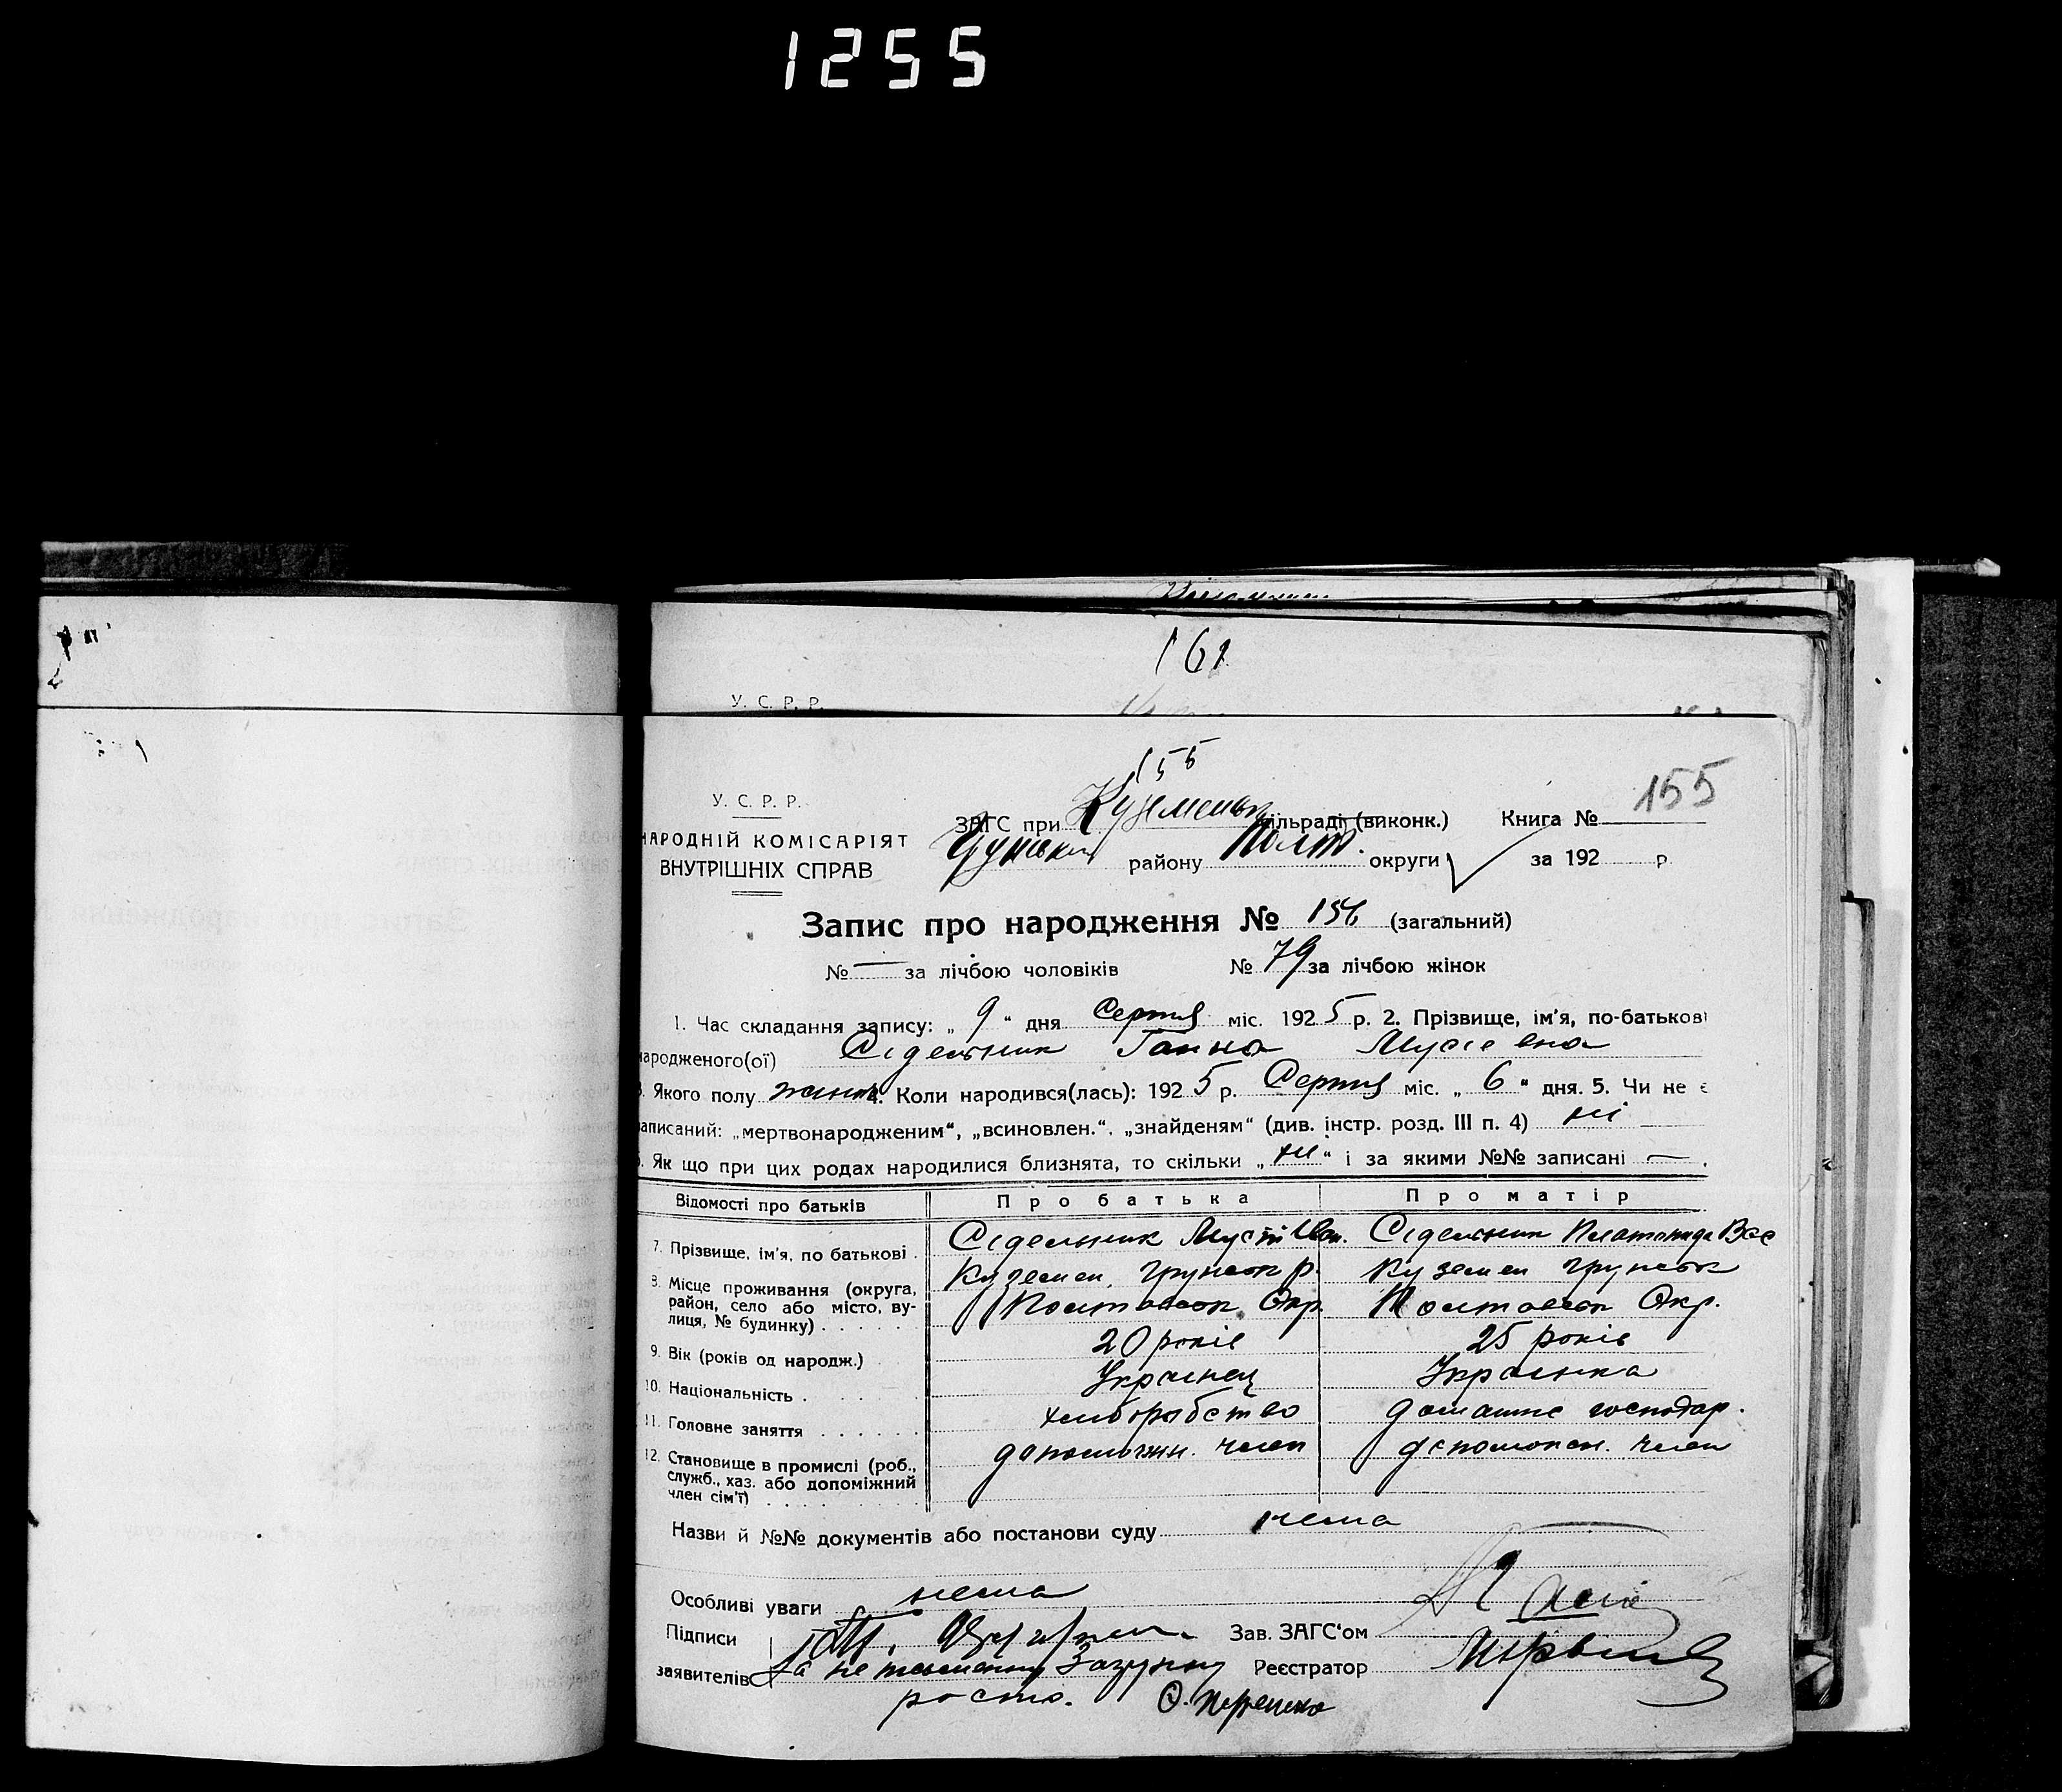 1255
161
У. С. Р. Р.
155
155
У. С. Р. Р.
НАРОДНІЙ КОМІСАРІЯТ
ВНУТРІШНІХ СПРАВ
ЗАГС при Куземенськ сільраді (виконк.) Книга №
району Полт. округи за 192 р.
Запис про народження № 156 (загальний)
№ — за лічбою чоловіків № 79 за лічбою жінок
1. Час складання запису: „ 9 “ дня Серпня міс. 1925 р. 2. Прізвище, ім'я, по-батькові
народженого(ої) Сідельник Ганна Мусіевна
3. Якого полу жіноч 4. Коли народився(лась): 1925 р. Серпня міс. „ 6 “ дня. 5. Чи не є
записаний: „мертвонародженим“, „всиновлен.“, „знайденям“ (див. інстр. розд. III п. 4) ні
6. Як що при цих родах народилися близнята, то скільки „ ні “ і за якими №№ записані — .
Відомості про батьків Про батька Про матір
7. Прізвище, ім'я, по батькові . Сідельник Мусій Іван. Сідельник Платонида Вас
8. Місце проживання (округа, район, село або місто, вулиця, № будинку) . . . . . Куземен. Грунськ р. Куземен Грунськ
Полтавськ Окр. Полтавськ Окр.
9. Вік (років од народж.) 20 років 25 років
10. Національність . . . . . Українец Українка
11. Головне заняття . . . . . . хліборобство домашнє господар.
12. Становище в промислі (роб., служб., хаз. або допоміжний член сім'ї) . . . . . допоможн. член допоможн. член
Назви й №№ документів або постанови суду нема
Особливі уваги нема
Підписи Зав. ЗАГС'ом
заявителів За неписьменну Реєстратор
росто.